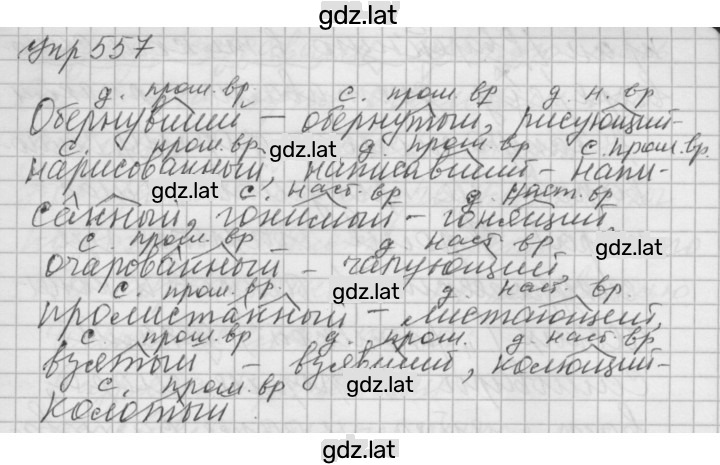 gdz.lat
упр 557
д. прош. вр. с. прош. вр д. н. вр
Обернувший – обернутый, рисующий-
с. прош. вр. gdz.lat д. прош. вр с. прош. вр.
нарисованный, написавший – напи-
gdz.lat с. наст. вр д. наст. вр
санный, гонимый – гонящий,
с. прош. вр д. наст вр gdz.lat
очарованный – чарующий,
с. прош. вр. gdz.lat д. наст. вр.
пролистанный – листающий,
с. прош. вр д. прош. д. наст. вр
взятый – взявший, колющий-
с. прош. вр gdz.lat
колотый
gdz.lat